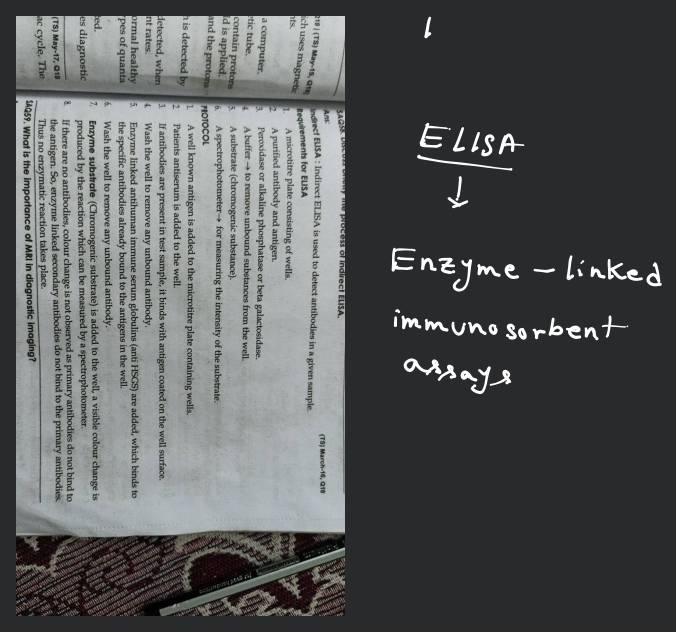 SAQ58. Discuss briefly the process of Indirect ELISA.
(TS) March-16, Q18
Ans:
Indirect ELISA : Indirect ELISA is used to detect antibodies in a given sample.
Requirements for ELISA
1. A microtitre plate consisting of wells.
2. A purified antibody and antigen.
3. Peroxidase or alkaline phosphatase or beta galactosidase.
4. A buffer → to remove unbound substances from the well.
5. A substrate (chromogenic substance).
6. A spectrophotometer → for measuring the intensity of the substrate.
PROTOCOL
1. A well known antigen is added to the microtitre plate containing wells.
2. Patients antiserum is added to the well.
3. If antibodies are present in test sample, it binds with antigen coated on the well surface.
4. Wash the well to remove any unbound antibody.
5. Enzyme linked antihuman immune serum globulins (anti HSGS) are added, which binds to
the specific antibodies already bound to the antigens in the well.
6. Wash the well to remove any unbound antibody.
7. Enzyme substrate (Chromogenic substrate) is added to the well, a visible colour change is
produced by the reaction which can be measured by a spectrophotometer.
8. If there are no antibodies, colour change is not observed as primary antibodies do not bind to
the antigen. So, enzyme linked secondary antibodies do not bind to the primary antibodies.
Thus no enzymatic reaction takes place.
SAQ59. What is the importance of MRI in diagnostic imaging?
(TS) May-15, Q18
ich uses magnetic
nts.
a computer.
tic tube.
contain protons
ld is applied.
and the protons
n is detected by
detected, when
nt rates.
ormal healthy
pes of quanta
ted.
es diagnostic
(TS) May-17, Q18
ac cycle. The
ELISA
↓
Enzyme - linked
immunosorbent
assays